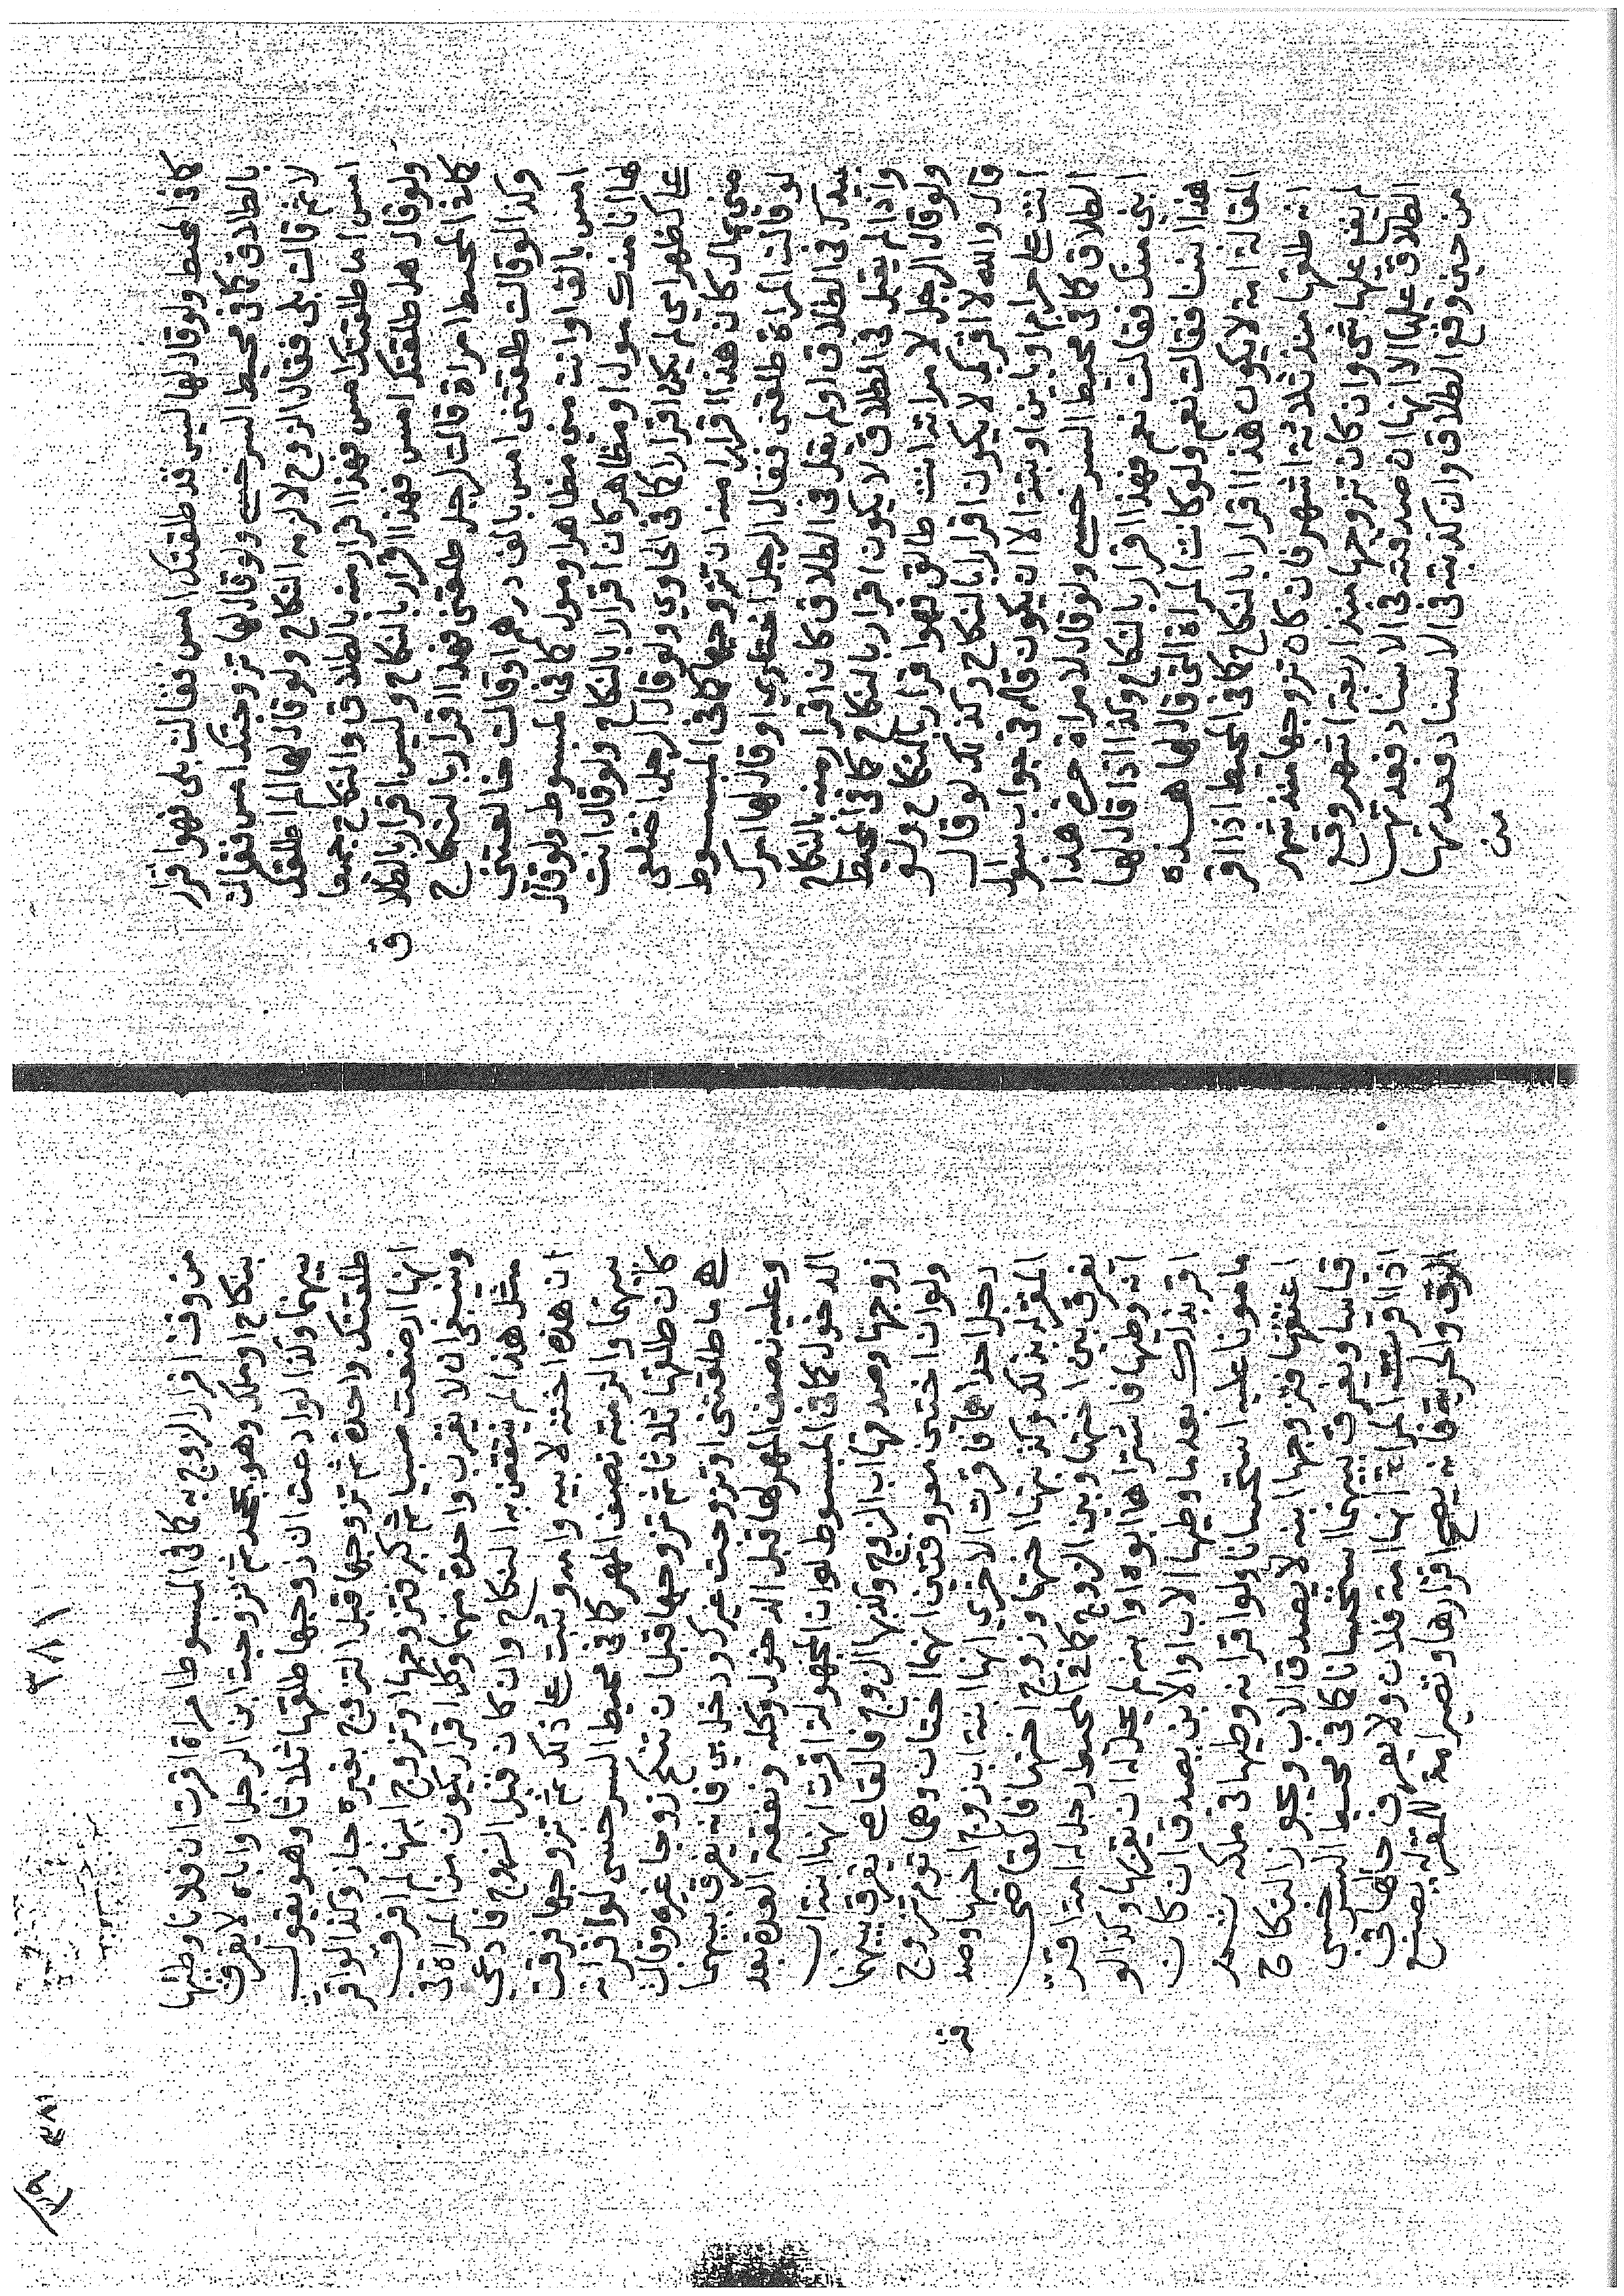 كما في المحيط ولو قال لها ليس قد طلقتك امس فقالت بلى فهو اقرار
بالطلاق كما في محيط السرخسي ولو قال لها تزوجتك امس فقالت
لا ثم قالت بلى فقال الزوج لا لزمه النكاح ولو قال لها الم اطلقك
امس اما طلقتك امس فهذا اقرار منه بالطلاق والنكاح جميعا
ولو قال هل طلقتك امس فهذا اقرار بالنكاح وليس اقرار بالطلاق
كما في المحيط امراة قالت لرجل طلقني فهذا اقرار بالنكاح
وكذا لو قالت طلقتني امس بالف درهم او قالت خالعتني
امس بالف او انت مني مظاهر او مول كما في المبسوط ولو قال
لها انا منك مول او مظاهر كان اقرارا بالنكاح ولو قال انت
علي كظهر امي لم يكن اقرارا كما في الحاوي ولو قال الرجل اختلعي
مني بمال كان هذا اقرارا منه ان تزوجها كما في المبسوط
لو قالت المراة طلقني فقال الرجل اختاري او قال لها امرك
بيدك في الطلاق او لم يقل في الطلاق كان اقرار منه بالنكاح
واذا لم يقل في الطلاق لا يكون اقرار بالنكاح كما في المحيط
ولو قال الرجل لامراته انت طالق فهو اقرار بالنكاح ولو
قال والله لا اقربك لا يكون اقرارا بالنكاح وكذلك لو قال
انت علي حرام او باين او بتة الا ان يكون قاله في جواب سوال
الطلاق كما في محيط السرخسي ولو قال لامراة حرة هذا
ابني منك فقالت نعم فهذا اقرار بالنكاح وكذا اذا قال لها
هذا ابننا فقالت نعم ولو كانت المراة التي قال لها هذه
المقالة امة لا يكون هذا اقرارا بالنكاح كما في المحيط اذا اقر
انه طلقها منذ ثلاثة اشهر فان كان تزوجها منذ شهر
لم يقع عليها شي وان كان تزوجها منذ اربعة اشهر وقع
الطلاق عليها الا انها ان صدقته في الاسناد فعدتها
من حين وقع الطلاق وان كذبته في الاسناد فعدتها
من
٣٨١
من وقت اقرار الزوج به كما في المبسوط امراة اقرت ان فلانا وطئها
بنكاح او ملك وهو يجحد ثم تزوجت ابن الرجل او اباه لا يفرق
بينهما وكذا لو ادعت ان زوجها طلقها ثلاثا وهو يقول
طلقتك واحدة ثم تزوجها قبل التزوج بغيره جاز وكذا لو اقرت
انها ارضعت صبيا ثم كبر فتزوجها او تزوج ابنها لم افرق
وينبغي ان لا يقرب واحدة منهما وكل اقرار يكون من المراة في
مثل هذا لم ينتقض به النكاح وان كان قبل الزوج فادعى
ان هذه اخته لابيه وامه وثبت على ذلك ثم تزوجها فرقت
بينهما والزمته نصف المهر كما في محيط السرخسي لو اقر انه
كان طلقها ثلاثا ثم تزوجها قبل ان تنكح زوجا غيره وقالت
هي ما طلقتني او تزوجت غيرك ودخل بي فانه يفرق بينهما
وعليه نصف المهر لها قبل الدخول وكله ونفقة العدة بعد
الدخول كما في المبسوط لو ان المجهولة اقرت انها ابنة اب
زوجها وصدقها اب الزوج وكذبها الزوج فالقاضي يفرق بينهما
ولو ان اختين معروفتين انهما اختان وهما توم تزوج
رجل احداهما فاقرت الاخرى انها ابنة اب زوج اختها وصدقه
المقر له بذلك وكذبتها اختها وزوج اختها فالقاضي
يفرق بين اختها وبين الزوج كما في المحيط رجل له امة اقر
انه وطيها فاشتراها ابوه او ابنه لم يحل له ان يقربها وكذا لو
اقر بذلك بعد ما وطيها الاب او الابن يصدق ان كان
مامونا عليه استحسانا ولو اقر انه وطيها في ملكه ثم
اعتقها فتزوجها ابنه لا يصدق الاب ويجوز النكاح
قياسا ويفرق بينهما استحسانا كما في محيط السرخسي
اذا اقرت المراة انها امة فلان ولا يعرف حالها في
الرق والحرية فانه يصح اقرارها وتصير امة للمقر له يصنع